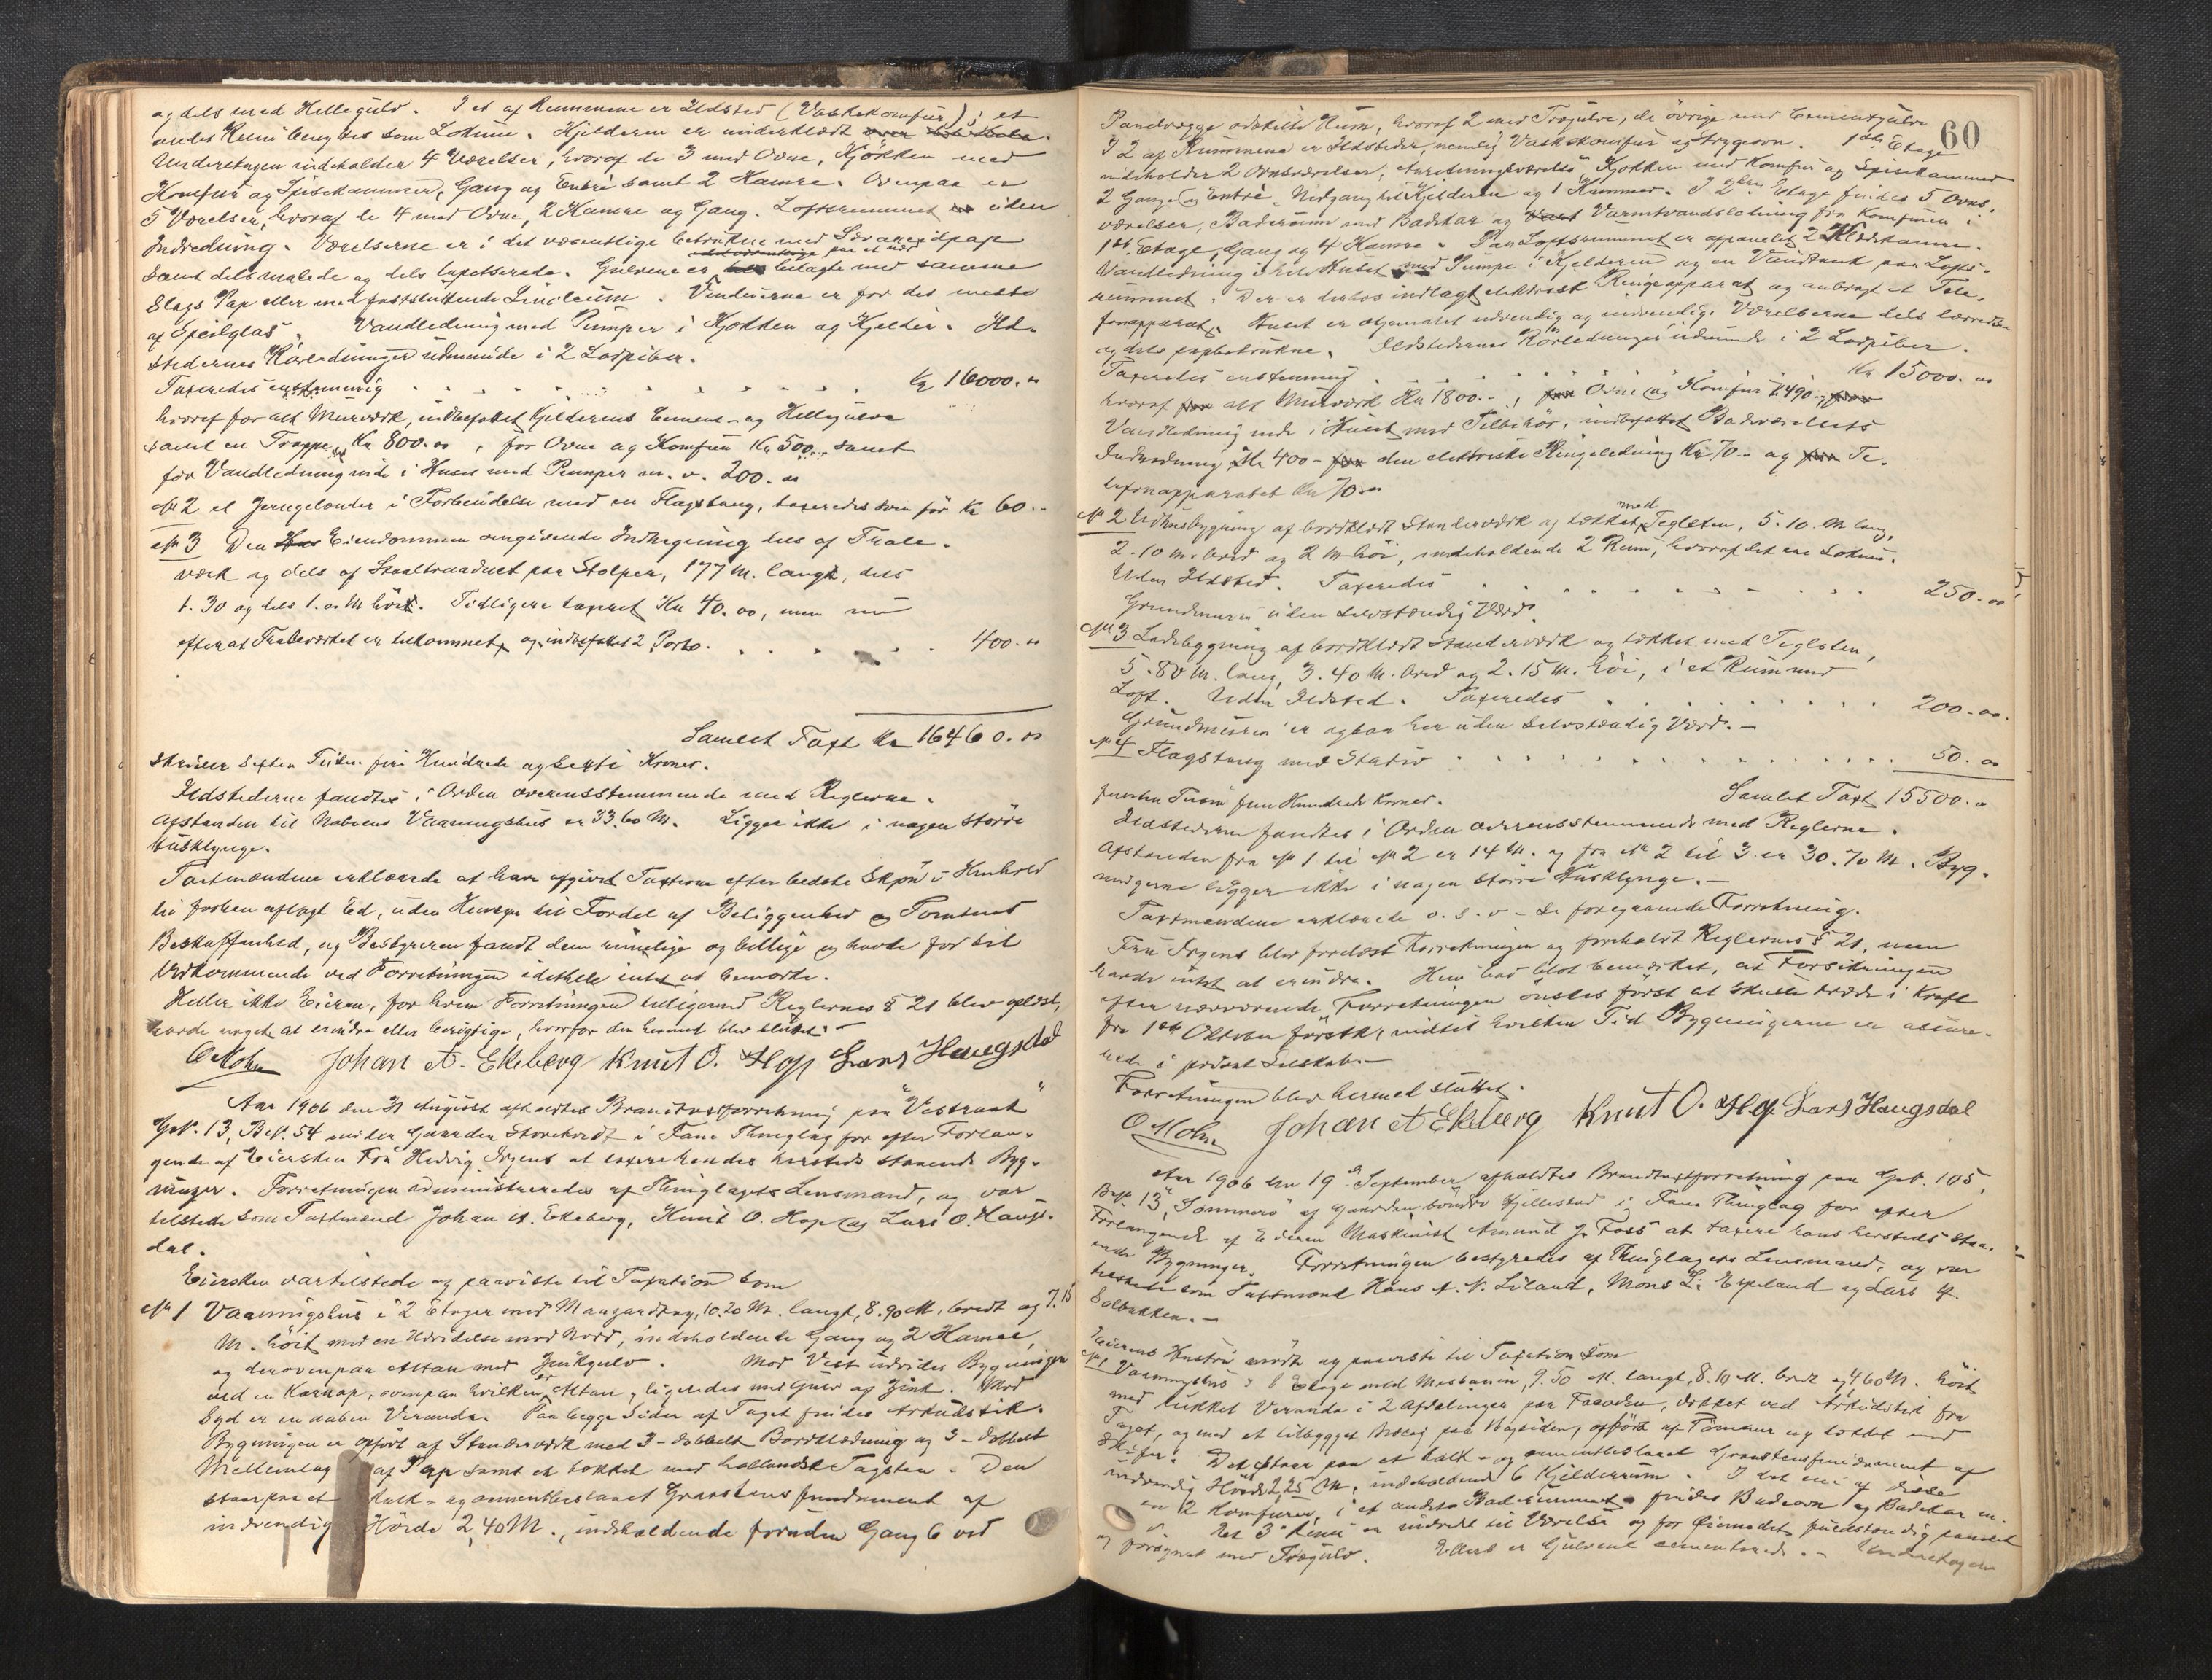 og dels med Hellegulv. I et af Rummene er Ildsted (Vaskekomfur); et
andet Rum benyttes som Lokum. Kjelderen er underklædt
Underetagen indeholder 4 Værelser, hvoraf de 3 med Ovne, Kjøkken med
Komfur og Spisekammer, Gang og Entré samt 2 Kamre. Ovenpaa er
5 Værelser, hvoraf de 4 med Ovne, 2 Kamre og Gang. Loftsrummet er uden
Indredning. Værelserne er i det væsentlige betrukne med
samt dels malede og dels tapetserede. Gulvene er paa et nær belagte med samme
Slags Pap eller med fastsluttende Linoleum. Vinduerne er for det meste
af Speilglas. Vandledning med Pumper i Kjøkken og Kjelder. Ild-
stedernes Rørledninger udmunde i 2 Lodpiber.
Taxeredes enstemmig . . . . . . . Kr 16000.00
hvoraf for alt Murværk, indbefattet Kjelderens Cement- og Hellegulve
samt en Trappe, Kr 800.00, for Ovne og Komfur Kr 500.. samt
for Vandledning inde i Huset med Pumper m. v. 200.00
No 2 et Jerngelender i Forbindelse med en Flagstang, taxeredes som før Kr 60..
No 3 Den Eiendommen omgivende Indhegning dels af Trale-
værk og dels af Staaltraadnet paa Stolper, 177 M. langt, dels
1.30 og dels 1.00 M høit. Tidligere taxeret Kr 40.00, men nu
efterat Traleværket er tilkommet, og indbefattet 2 Porte. . . . . . 400.00
Samlet Taxt Kr 16460.00
skriver sexten Tusen fire Hundrede og sexti Kroner.
Ildstederne fandtes i Orden overensstemmende med Reglerne.
Afstanden til Naboens Vaaningshus er 33.60 M. Ligger ikke i nogen større
Husklynge.
Taxtmændene erklærede at have afgivet Taxterne efter bedste Skjøn i Henhold
til forhen aflagt Ed, uden Hensyn til Fordel af Beliggenhed og Tomtens
Beskaffenhed, og Bestyreren fandt dem rimelige og billige og havde for sit
Vedkommende ved Forretningen idethele intet at bemærke.
Heller ikke Eieren, for hvem Forretningen tilligemed Reglernes § 21 blev oplæst,
havde noget at erindre eller berigtige, hvorfor den hermed blev sluttet.—
O Mohn Johan A. Ekeberg Knut O. Hop Lars Haugsdal
Aar 1906 den 31 August afholdtes Brandtaxtforretning paa "Vestraat"
Gr.N. 13, B.N. 54 under Gaarden Storetvedt i Fane Thinglag for efter Forlan-
gende af Eiersken Fru Hedvig Irgens at taxere hendes hersteds staaende Byg-
ninger. Forretningen administreredes af Thinglagets Lensmand, og var
tilstede som Taxtmænd Johan A. Ekeberg, Knut O. Hop og Lars O. Haugs-
dal.
Eiersken var tilstede og paaviste til Taxation som
No 1 Vaaningshus i 2 Etager med Mansardtag, 10.20 M. langt, 8.90 M. bredt og 7.15
M. høit med en Udvidelse mod Nord, indeholdende Gang og 2 Kamre,
og derovenpaa Altan med Zinkgulv. Mod Vest udvides Bygningen
ved en Karnap, ovenpaa hvilken er Altan, ligeledes med Gulv af Zink. Mod
Syd er en aaben Veranda. Paa begge Sider af Taget findes Arkudstik.
Bygningen er opført af Stenderværk med 3-dobbelt Bordklædning og 3-dobbelt
Mellemlag af Pap samt er tækket med hollandsk Tagsten. Den
staar paa et kalk- og cementberslaaet Graastensfundament af
indvendig Høide 2,40 M., indeholdende foruden Gang 6 ved
60
Panelvægge adskilte Rum, hvoraf 2 med Trægulve, de øvrige med Cementgulve
I 2 af Rummene er Ildsteder, nemlig Vaskekomfur og Strygeovn. 1ste Etage
indeholder 2 Ovnsværelser, Anretningsværelse, Kjøkken med Komfur og Spisekammer
2 Gange og Entré, Nedgang til Kjelderen og 1 Kammer. I 2den Etage findes 5 Ovns-
værelser, Baderum med Badekar og Varmtvandsledning fra Komfuren i
1ste Etage, Gang og 4 Kamre. Paa Loftsrummet er afpanelet 2 Klædekamre.
Vandledning i hele Huset med Pumpe i Kjelderen og en Vandtank paa Lofts-
rummet. Der er derhos indlagt elektrisk Ringeapparat og anbragt et Tele-
fonapparat. Huset er oljemalet udvendig og indvendig. Værelserne dels lærreds-
og dels papbetrukne. Ildstedernes Rørledninger udmunde i 2 Lodpiber.
Taxeredes enstemmig . . . . . . . Kr 15000.00
hvoraf alt Murværk Kr 1800.-, Ovne og Komfur K 490.-,
Vandledning inde i Huset med Tilbehør, indbefattet Badeværelsets
Indredning, Kr 400- den elektriske Ringeledning Kr 70.- og Te-
lefonapparatet Kr 70.00
No 2 Udhusbygning af bordklædt Stenderværk og tækket med Teglsten, 5.10 M lang,
2.10 M. bred og 2 M høi, indeholdende 2 Rum, hvoraf det ene Lokum.
Uden Ildsted. Taxeredes . . . . . . . 250.00
Grundmuren uden selvstændig Værd.
No 3 Ladebygning af bordklædt Stenderværk og tækket med Teglsten,
5.80 M. lang, 3.40 M. bred og 2.15 M. høi, i et Rum med
Loft. Uden Ildsted. Taxeredes . . . . . . . 200.00.
Grundmuren er ogsaa her uden selvstændig Værd.—
No 4 Flagstang med Stativ . . . . . . . 50.00
Samlet Taxt 15500.00
femten Tusen fem Hundrede Kroner.
Ildstederne fandtes i Orden overensstemmende med Reglerne.
Afstanden fra No 1 til No 2 er 14 M. og fra No 2 til 3 er 30.70 M. Byg-
ningerne ligger ikke i nogen større Husklynge.—
Taxtmændene erklærede o. s. v - se foregaaende Forretning.
Fru Irgens blev forelæst Forretningen og foreholdt Reglernes § 21, men
havde intet at erindre. Hun bad blot bemærket, at Forsikringen
efter nærværende Forretningen ønskes først at skulle træde i Kraft
fra 1ste Oktober førstk., indtil hvilken Tid Bygningerne er assure-
rede i privat Selskab.—
Forretningen blev hermed sluttet.
O Mohn Johan A Ekeberg Knut O. Hop Lars Haugsdal
Aar 1906 den 19 September afholdtes Brandtaxtforretning paa Gr.N. 105,
Br.N. 13, "Sommero" af Gaarden søndre Gjillestad i Fane Thinglag for efter
Forlangende af Eieren Maskinist Amund J. Foss at taxere hans hersteds staa-
ende Bygninger. Forretningen bestyredes af Thinglagets Lensmand, og var
tilstede som Taxtmænd Hans A. N. Liland, Mons L. Espeland og Lars A.
Solbakken.—
Eierens Hustru mødte og paaviste til Taxation som
No 1 Vaaningshus i 1 Etage med Mesanin, 9.50 M. langt, 8.10 M. bredt og 4.60 M. høit
med lukket Veranda i 2 Afdelinger paa Facaden, dækket ved Arkudstik fra
Taget, og med et tilbygget Bislag paa Bagsiden, opført af Tømmer og tækket med
Skifer. Det staar paa et kalk- og cementbeslaaet Graastensfundament af
indvendig Høide 2,25 M., indeholdende 6 Kjelderrum. I det ene af disse
er 2 Komfurer, i et andet Baderummet findes Badeovn og Badekar m.
v. Det 3die Rum er indredet til Værelse og for Øiemedet fuldstændig panelet
og forsynet med Trægulv. Ellers er Gulvene cementerede.— Underetagen